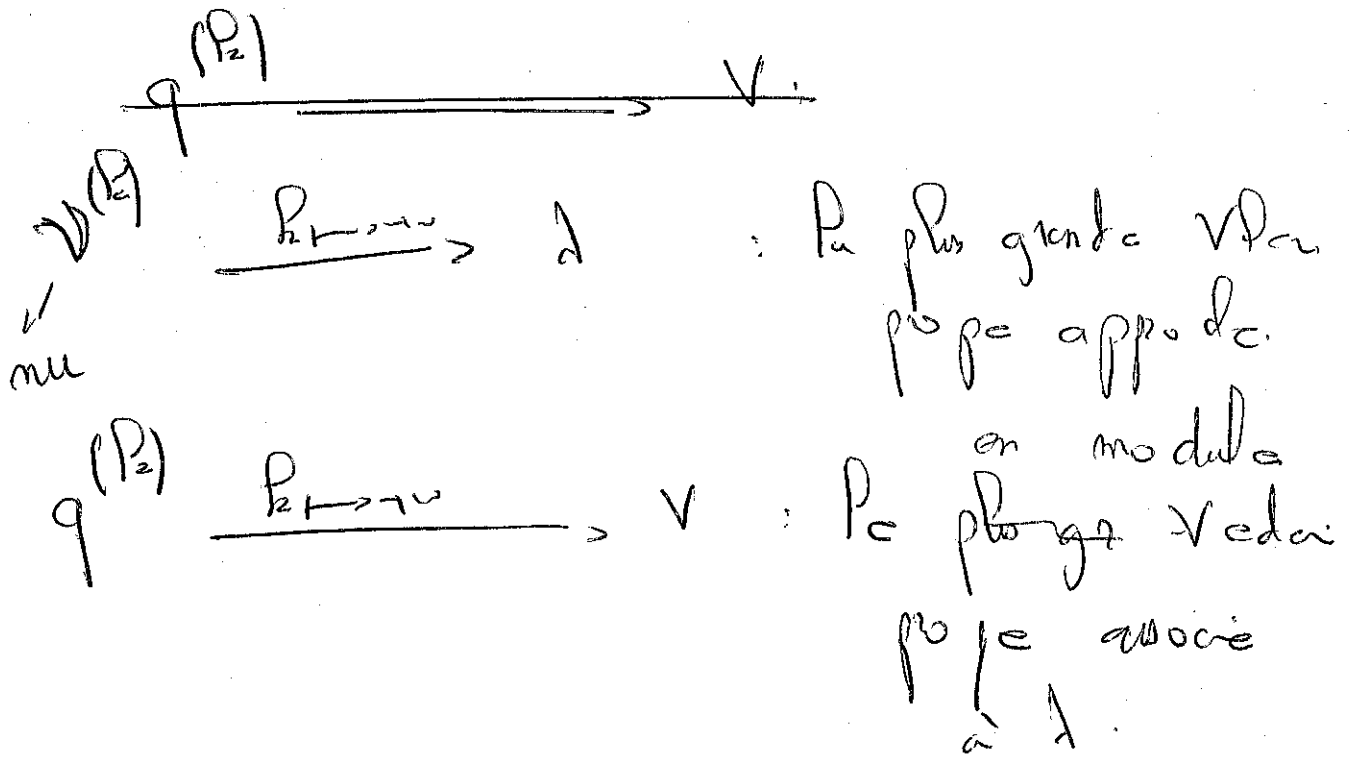 q^(k) → V.
ν^(k) k→+∞ → λ : la plus grande Valeur
nu propre approchée
en module
q^(k) k→+∞ → V : le Vecteur
propre associé
à λ.